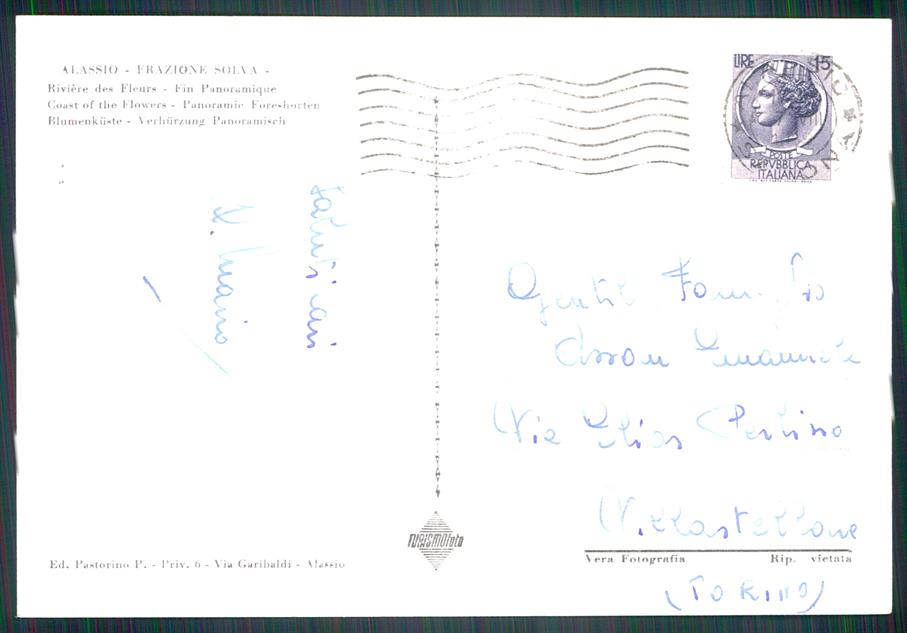 ALASSIO - FRAZIONE SOLVA -
Rivière des Fleurs - Fin Panoramique
Coast of the Flowers - Panoramic Foreshorten
Blumenküste - Verhürzung Panoramisch
LIRE 15
POSTE
REPVBBLICA
ITALIANA
Saluti cari
Gentil Famiglia
Emanuele
Via
Villastellone
(TORINO)
TURISMOfoto
Vera Fotografia Rip. vietata
Ed. Pastorino P. - Priv. 6 - Via Garibaldi - Alassio